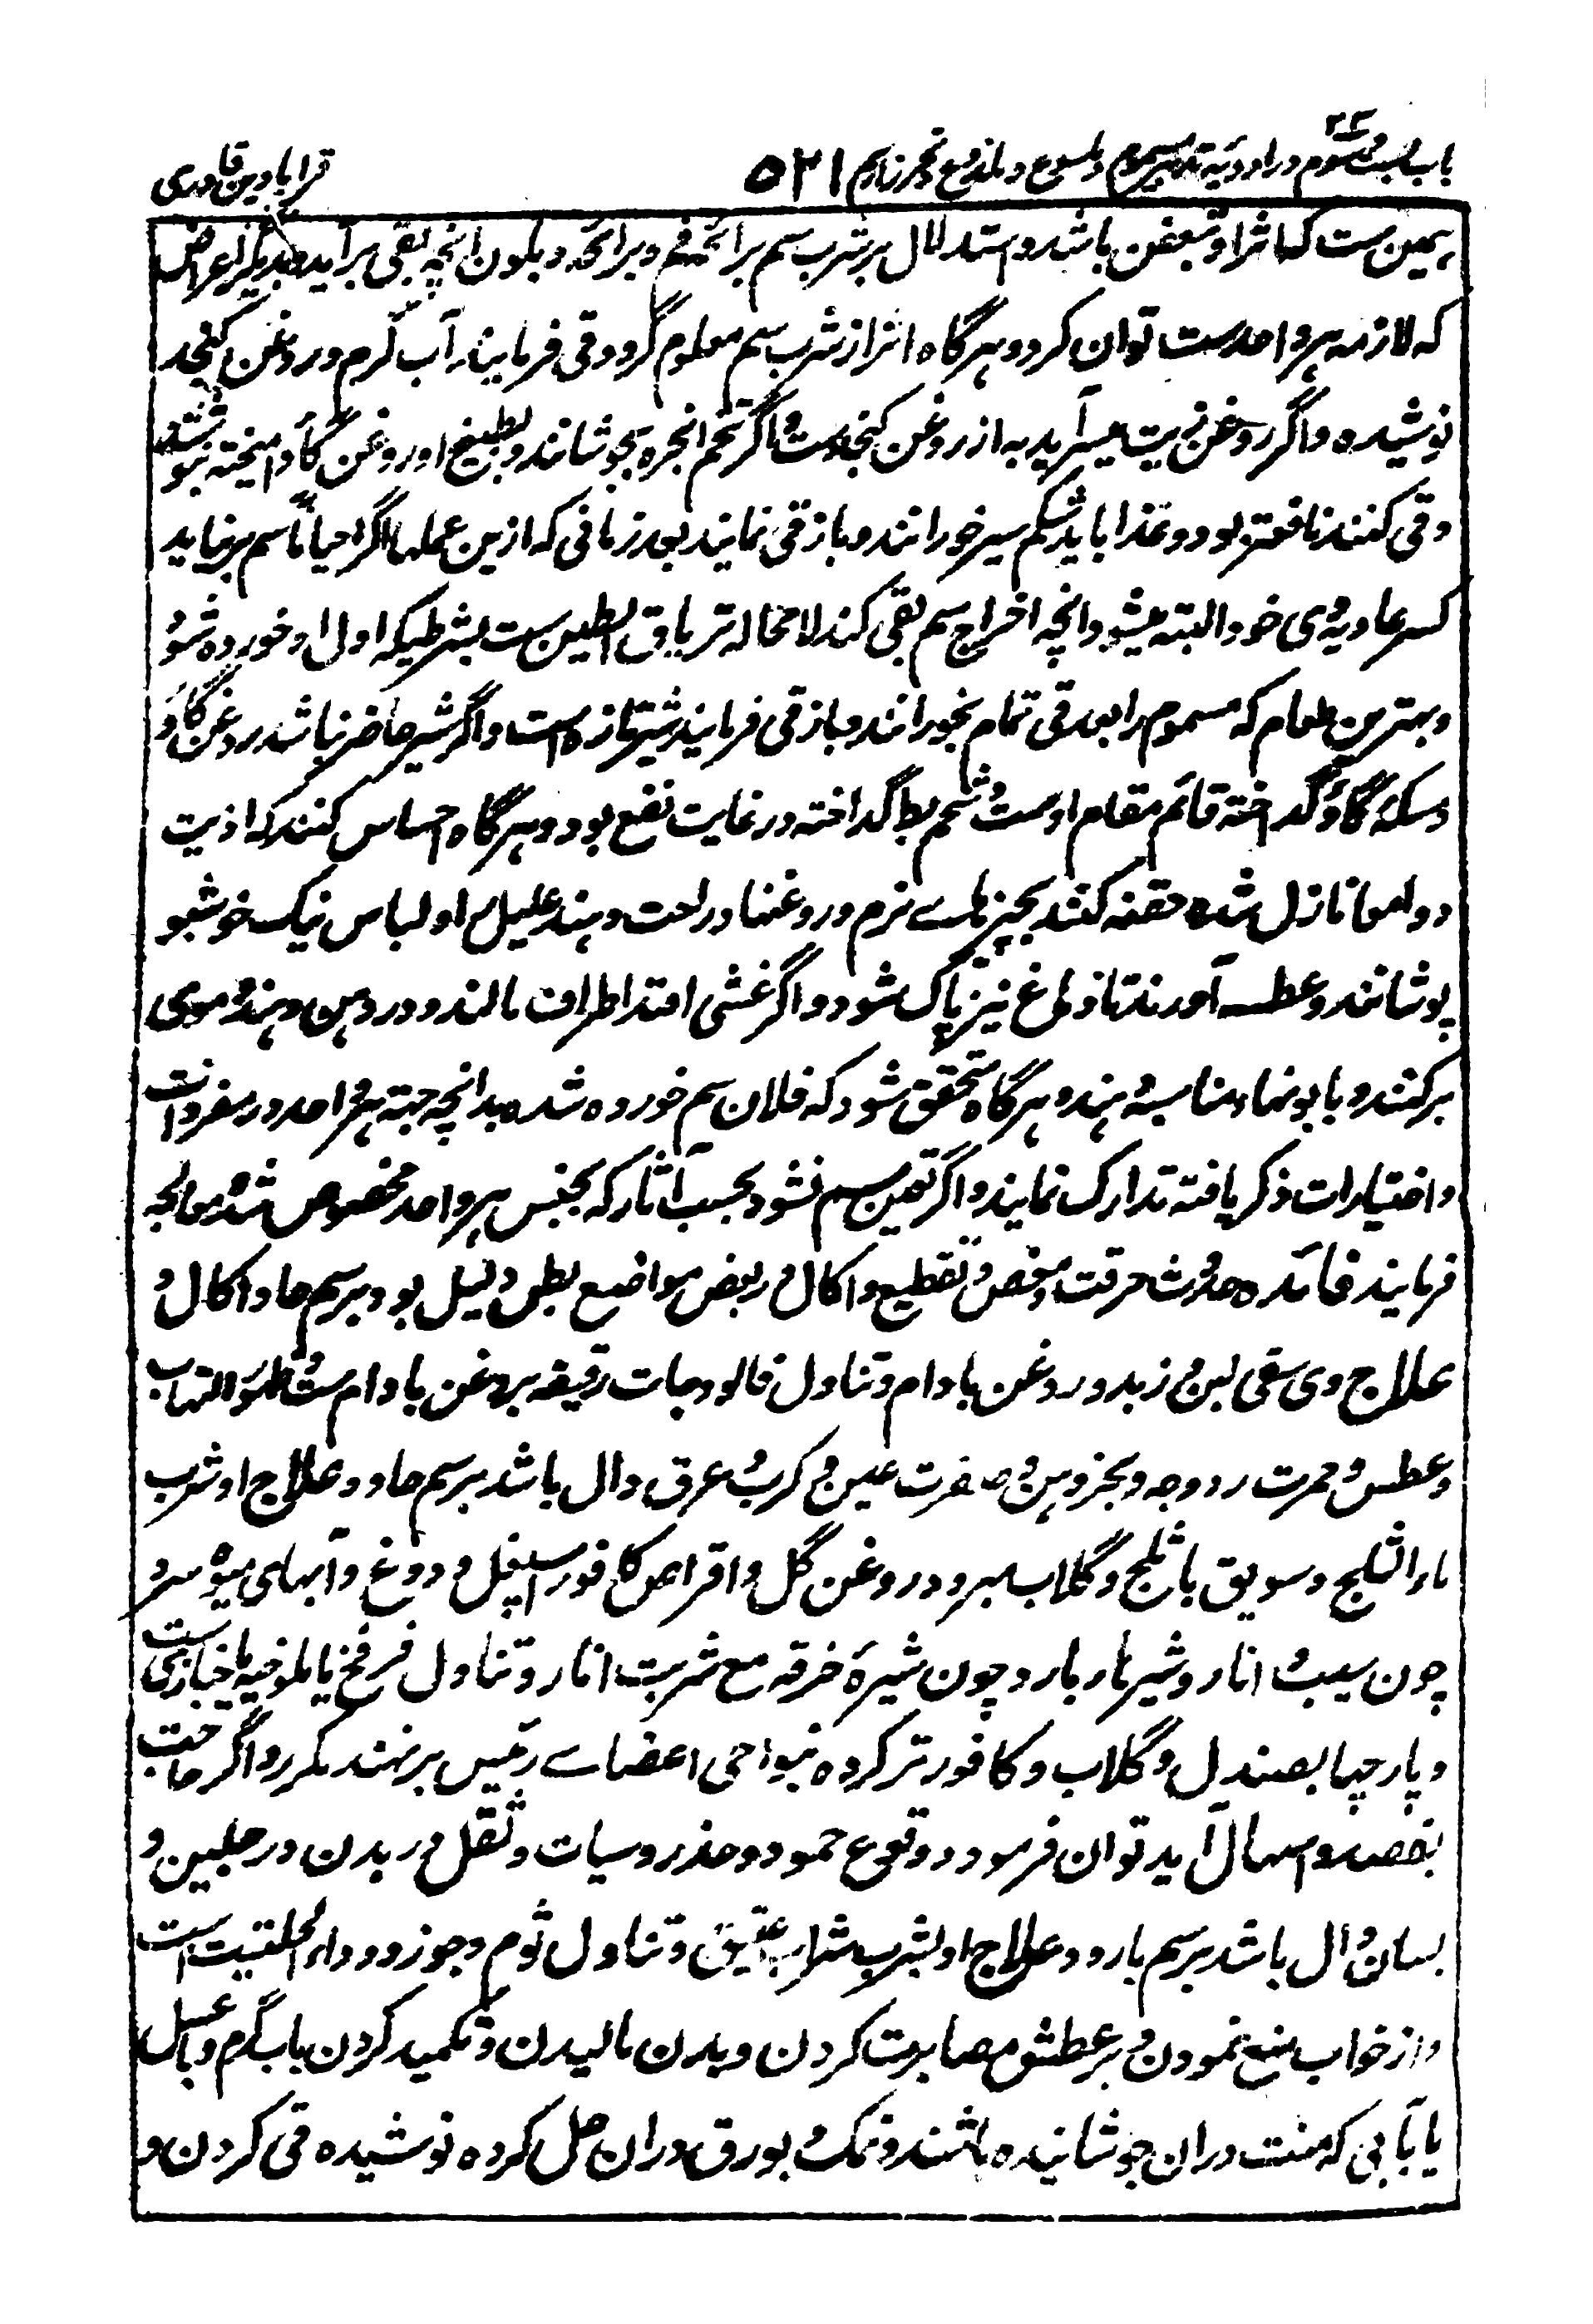 باب بست و سوم در ادویه تدابیر مسموم و ملسوع و ملدوغ ۵۲۱ قرابادین قادری
همین ست که اثر او تعفن باشد و استدلال بر شرب سم برائحه فم و برائحه و بلون انچه بقی برآید و بدیگر اعراض
که لازمه هر واحدست توان کرد و هرگاه اثر از شرب سم معلوم گردد قی فرمایند آب گرم و روغن کنجد
نوشیده و اگر روغن زیت میسر آید به از روغن کنجدست و اگر تخم انجره بجوشانند و بطبیخ او روغن گاؤ آمیخته بنوشند
و قی کنند نافعتر بود و غذا باید شکم سیر خورانند و باز قی نمایند بعد زمانی که ازین عملها اگر احیاناً سم برنیاید
کسر عادیهٔ وی خود البته میشود و انچه اخراج سم بقی کند لا محاله تریاق الطین ست بشرطیکه اول او خورده شود
و بهترین طعام که مسموم را بعد قی تمام بخورانند و باز قی فرمایند شیر تازه است و اگر شیر حاضر نباشد روغن گاؤ
و مسکهٔ گاؤ گداخته قائم مقام اوست و شحم بط گداخته در غایت نفع بود و هرگاه احساس کنند که اذیت
دوا معا نازل شده حقنه کنند بچیزهاے نرم و روغنها و راحت دهند علیل را و لباس نیک خوشبو
پوشانند و عطسه آورند تا دماغ نیز پاک شود و اگر غشی افتد اطراف مالند و در دهن دمند و موی
برکنند و بابونها مناسبه دهند و هرگاه متحقق شود که فلان سم خورده شده بدانچه جهة هر واحد در مفردات
و اختیارات ذکر یافته تدارک نمایند و اگر تعین سم نشود بحسب آثار که بجنس هر واحد مخصوص شده معالجه
فرمایند فائده حدوث حرقت و مغص و تقطیع و اکال در بعض مواضع بطن دلیل بود بر سم حاد اکال و
علاج وی سقی لبن و زبد و روغن بادام و تناول فالودجات رقیقه بروغن بادام ست و ظهور التهاب
و عطش و حمرت رو و وجه و بخر دهن و صفرت عین و کرب و عرق دال باشد بر سم حاد و علاج او شرب
ماء الثلج و سویق با ثلج و گلاب سرد و روغن گل و اقراص کافور اسپغل و دوغ و آبهای میوه سرد
چون سیب و انار و شیرهاء بارد چون شیرهٔ خرفه مع شربت انار و تناول فرفخ یا ملوخیه یا خبازی ست
و پارچها بصندل و گلاب و کافور تر کرده بنواحی اعضاے رئیس برنهند مکرر و اگر حاجت
بفصد و اسهال آید توان فرمود و وقوع جمود و خدر و سبات و ثقل در بدن و رجلین و
لسان دال باشد بر سم بارد و علاج او بشرب شراب عتیق و تناول ثوم و جوز و دواء الحلتیت است
و از خواب منع نمودن و بر عطش مصابرت کردن و بدن مالیدن و تکمید کردن بآب گرم و با عسل
یا بآبی که منت دران جوشانیده باشند و نمک و بورق دران حل کرده نوشیده قی کردن و